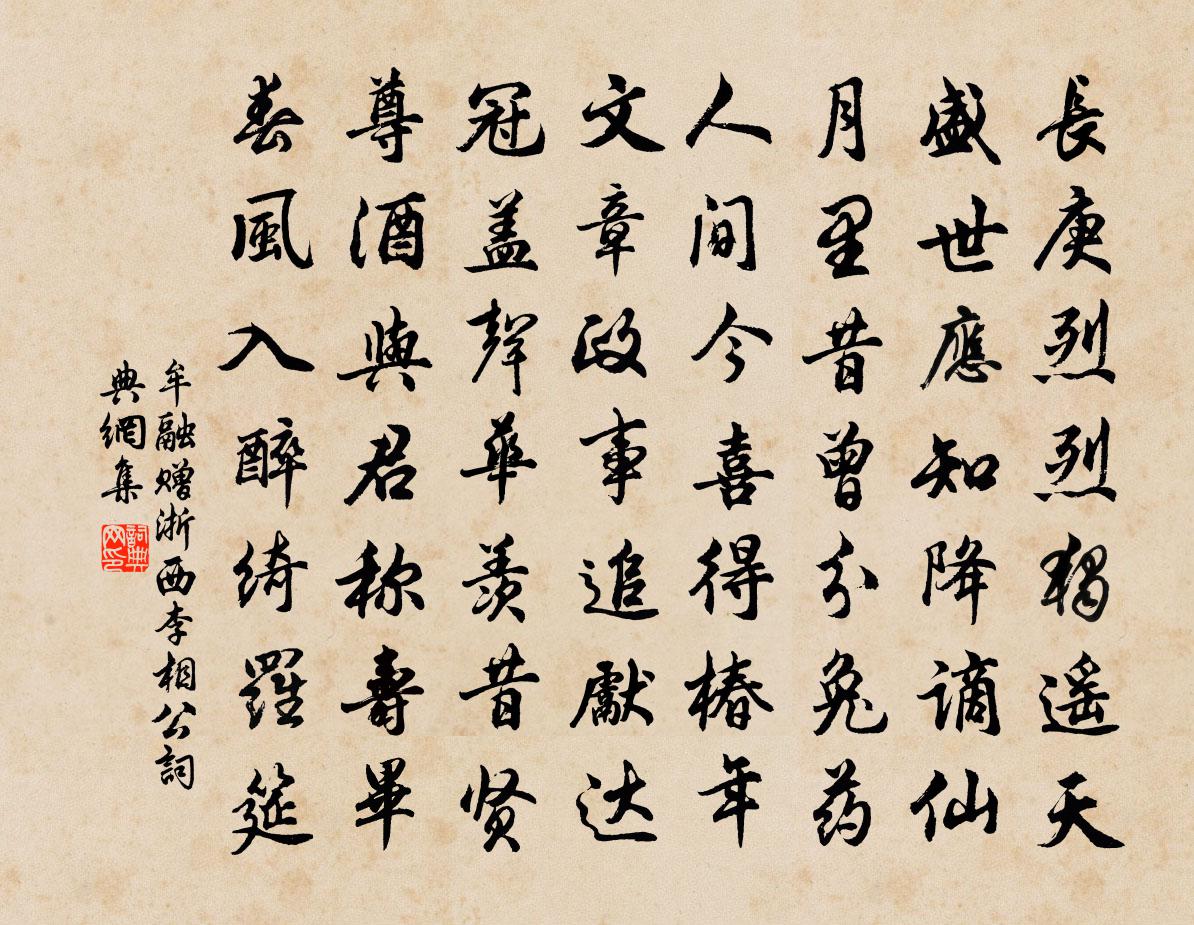 長庚烈烈獨遥天
盛世應知降谪仙
月里昔曾分兔药
人间今喜得椿年
文章政事追獻达
冠盖聲華羨昔贤
尊酒與君称壽畢
春風入醉绮羅筵
牟融赠浙西李相公詞
典網集
詞典网印